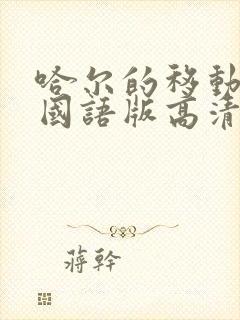 哈尔的移動
國語版高清
蔣幹